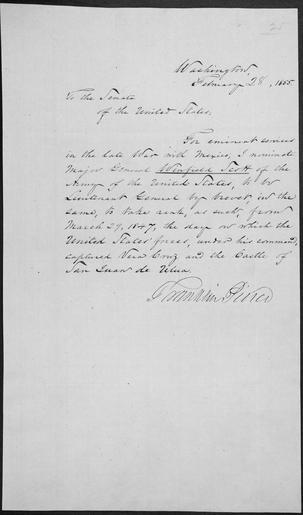 25
Washington,
February 28, 1855.
To the Senate
of the United States.
For eminent services
in the late War with Mexico, I nominate
Major General Winfield Scott of the
Army of the United States, to be
Lieutenant General by brevet, in the
same, to take rank, as such, from
March 29, 1847, the day on which the
United States forces, under his command,
captured Vera Cruz and the Castle of
San Juan de Ulua.
Franklin Pierce